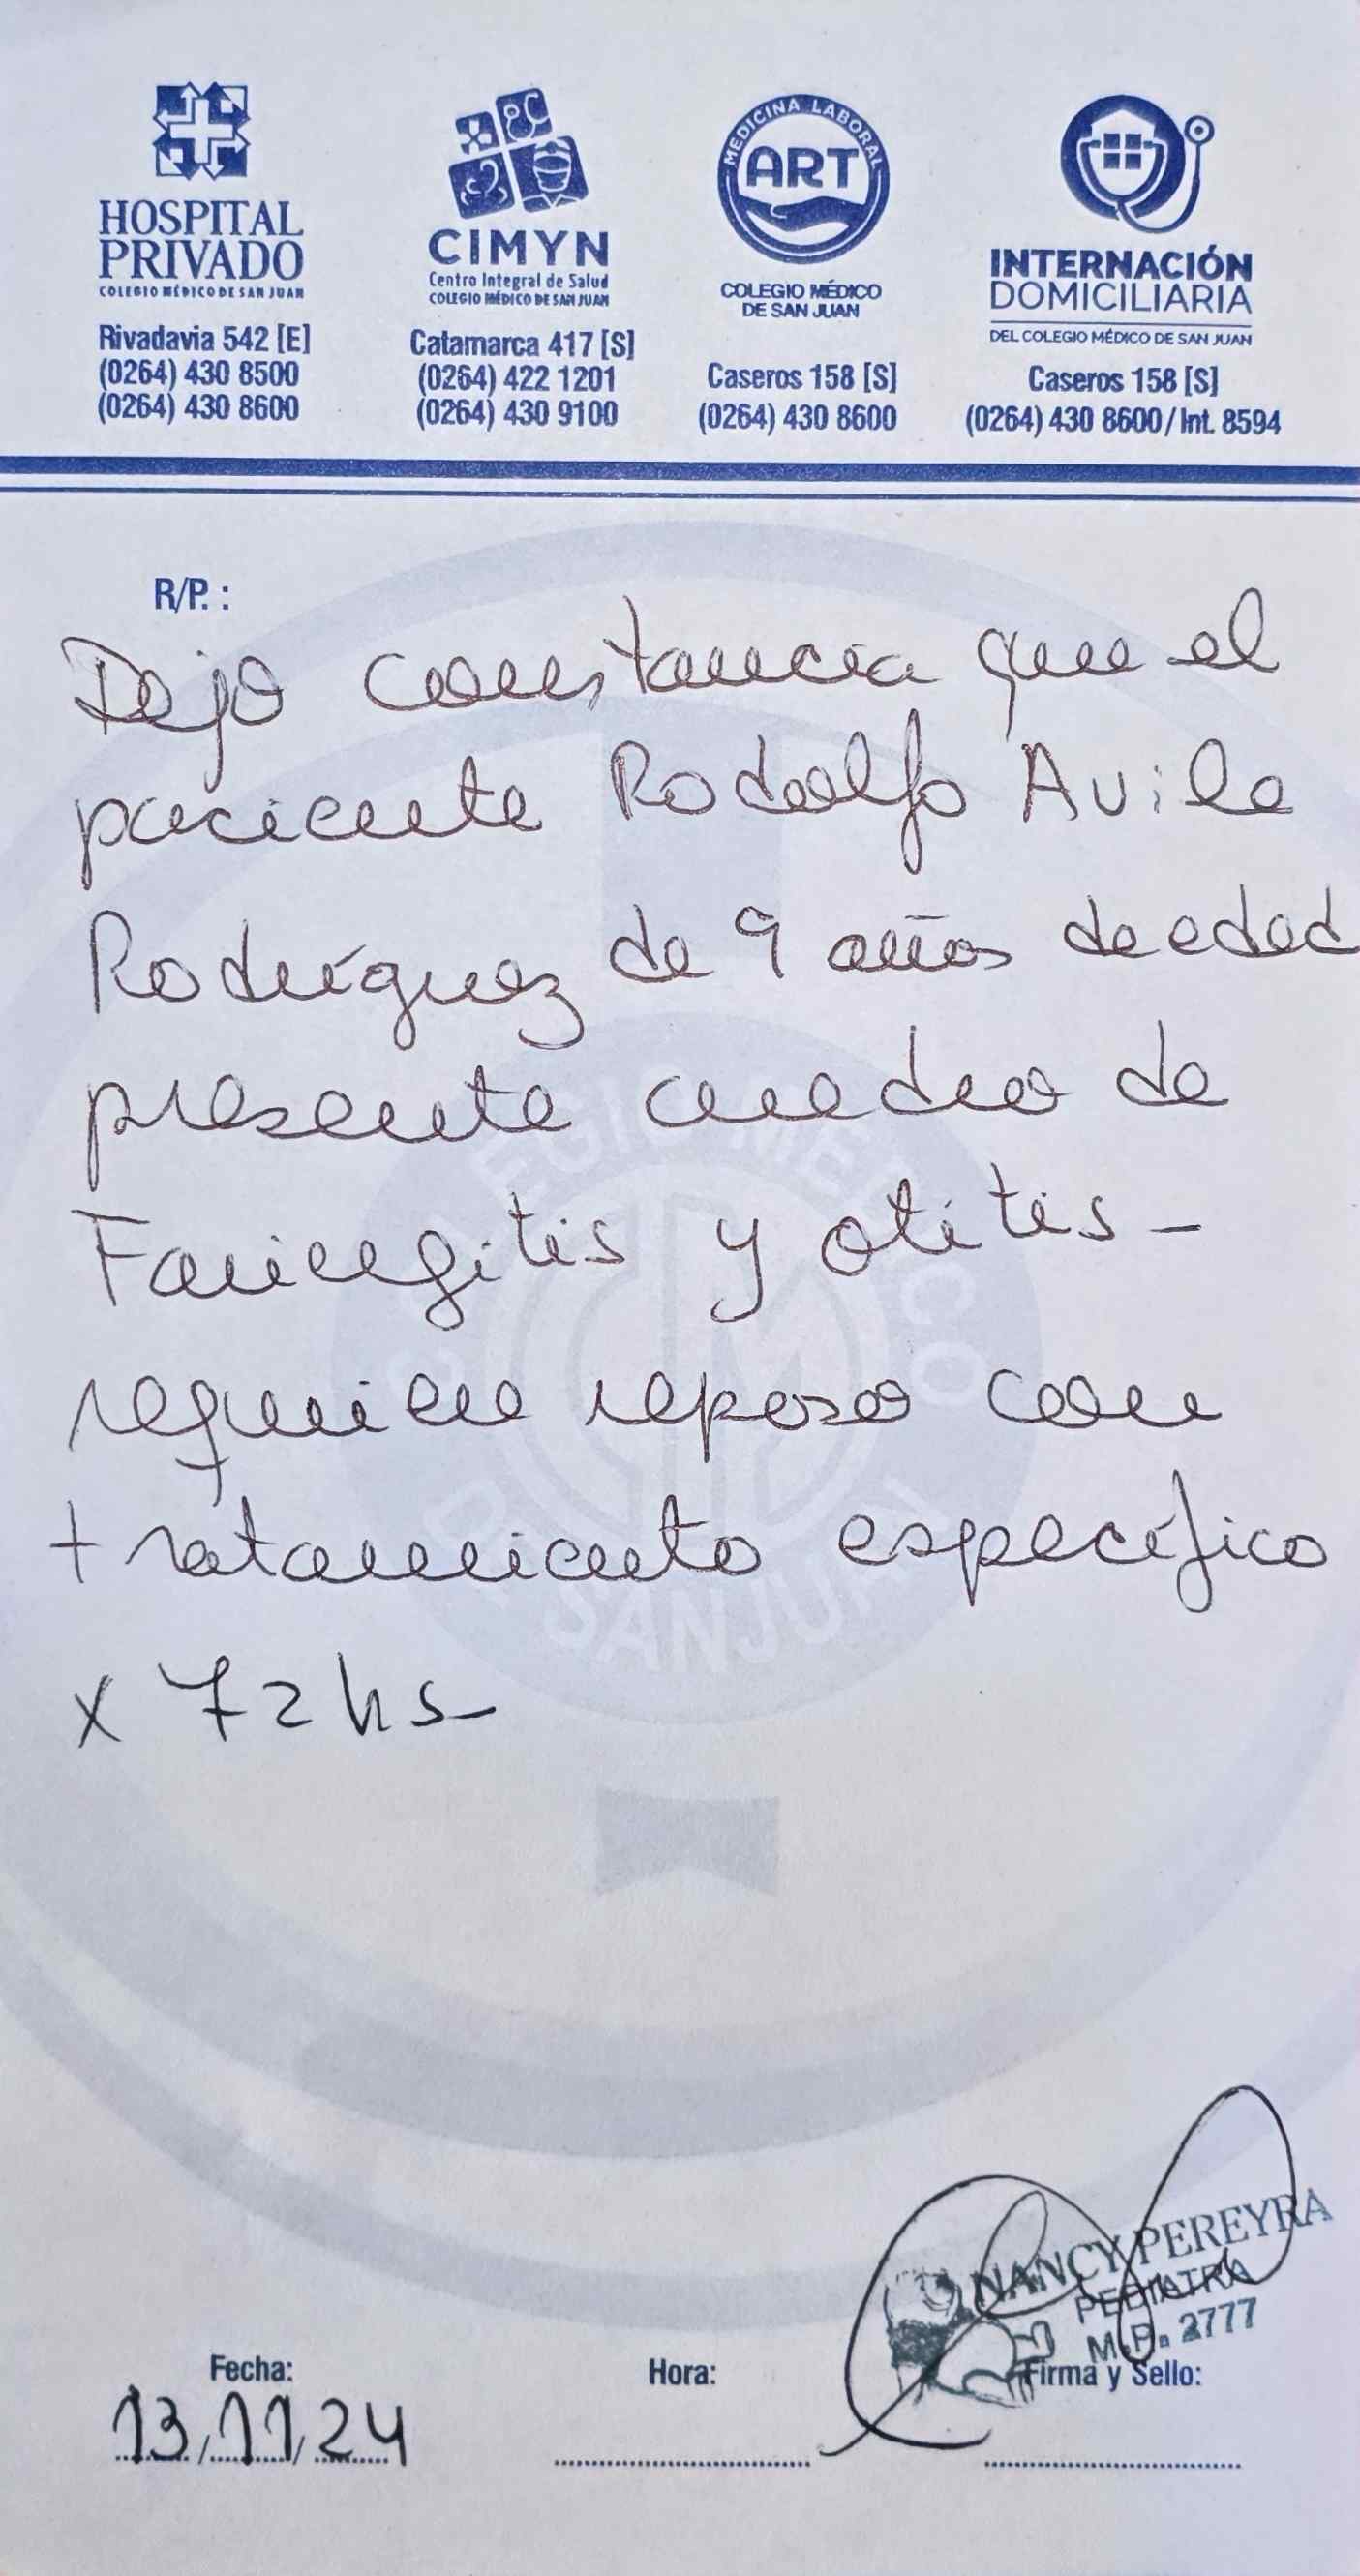 HOSPITAL
PRIVADO
COLEGIO MÉDICO DE SAN JUAN
Rivadavia 542 [E]
(0264) 430 8500
(0264) 430 8600
CIMYN
Centro Integral de Salud
COLEGIO MÉDICO DE SAN JUAN
Catamarca 417 [S]
(0264) 422 1201
(0264) 430 9100
MEDICINA LABORAL
ART
COLEGIO MÉDICO
DE SAN JUAN
Caseros 158 [S]
(0264) 430 8600
INTERNACIÓN
DOMICILIARIA
DEL COLEGIO MÉDICO DE SAN JUAN
Caseros 158 [S]
(0264) 430 8600 / Int. 8594
R/P. :
Dejo constancia que el
paciente Rodolfo Avila
Rodríguez de 9 años de edad
presenta cuadro de
Faringitis y otitis -
requiere reposo con
tratamiento específico
x 72 hs -
COLEGIO MÉDICO
DE SAN JUAN
CM
NANCY PEREYRA
PEDIATRA
M.P. 2777
Fecha:
13/11/24
Hora:
Firma y Sello: